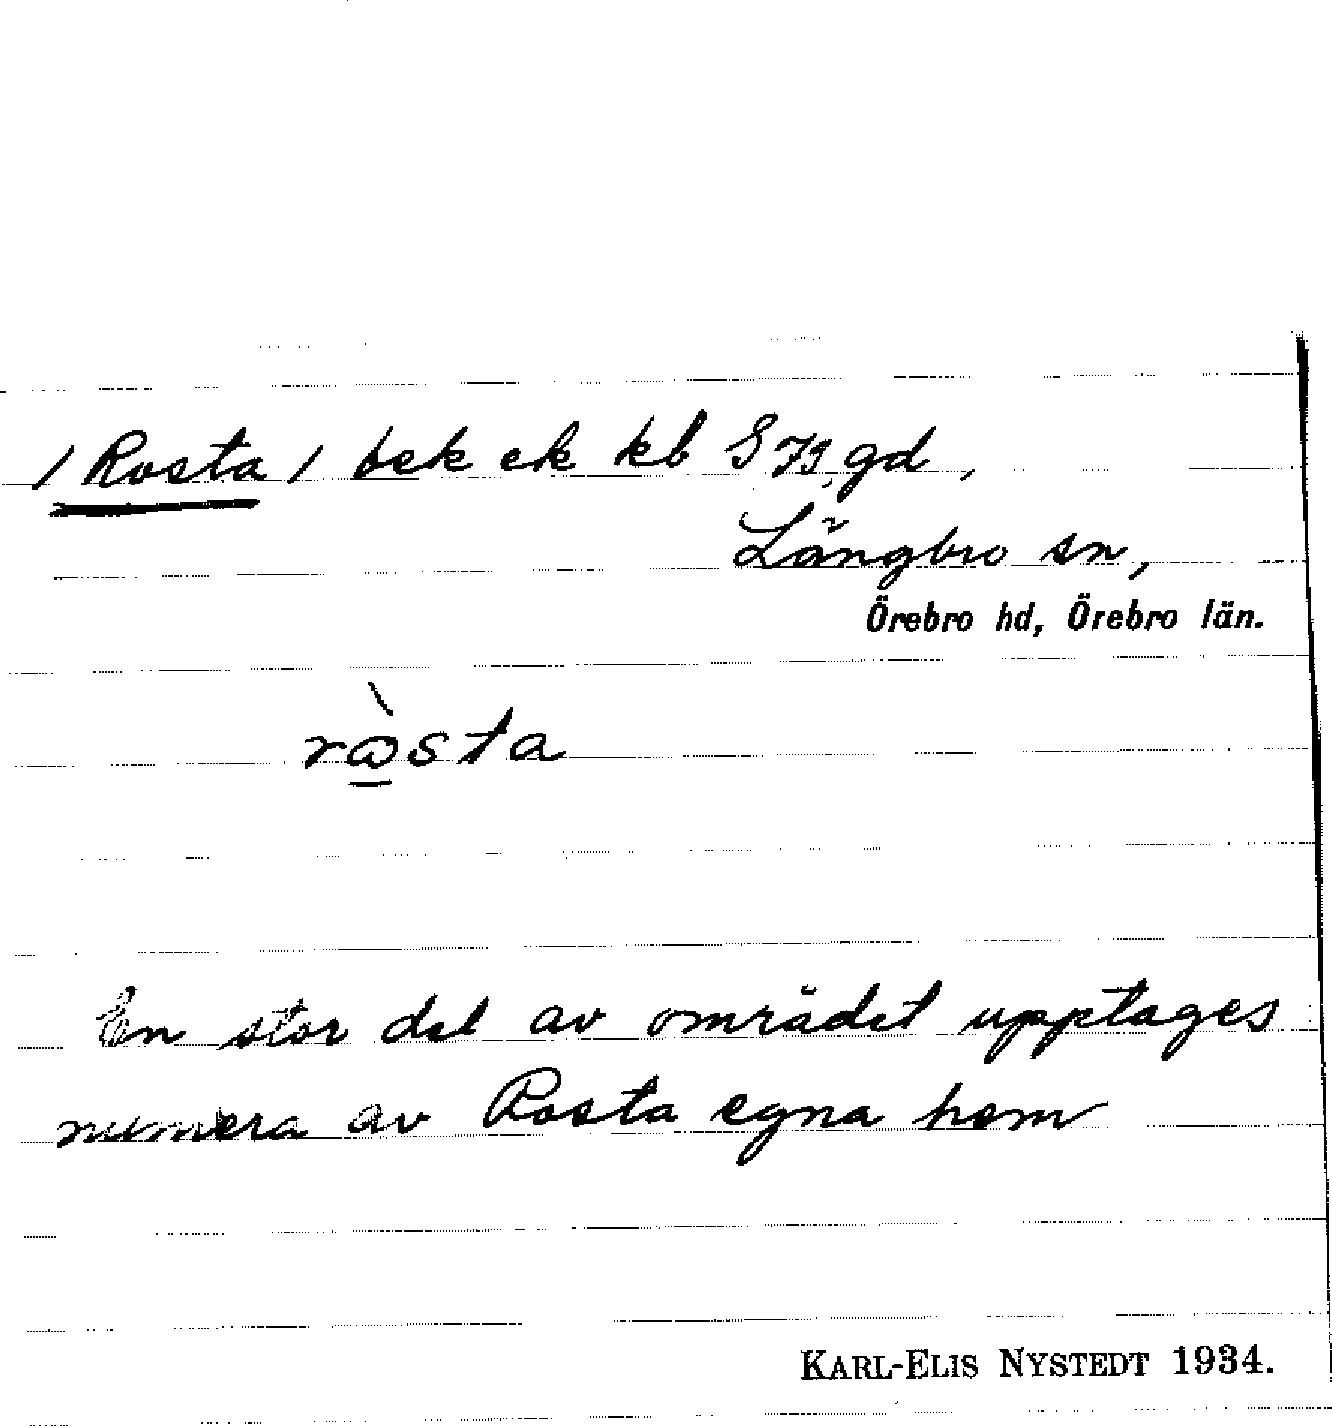 / Rosta / bek ek kb S 79, gd,
Långbro sn,
Örebro hd, Örebro län.
rὼsta
En stor del av området upptages
numera av Rosta egna hem
KARL-ELIS NYSTEDT 1934.